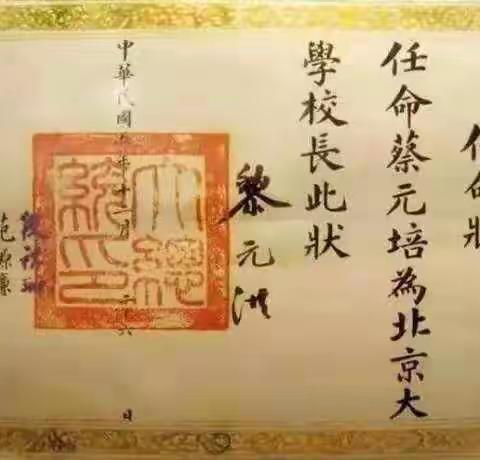 任命狀
任命蔡元培為北京大
學校長此狀
黎元洪
大總統印
中華民國五年十二月二十六日
段祺瑞
范源廉